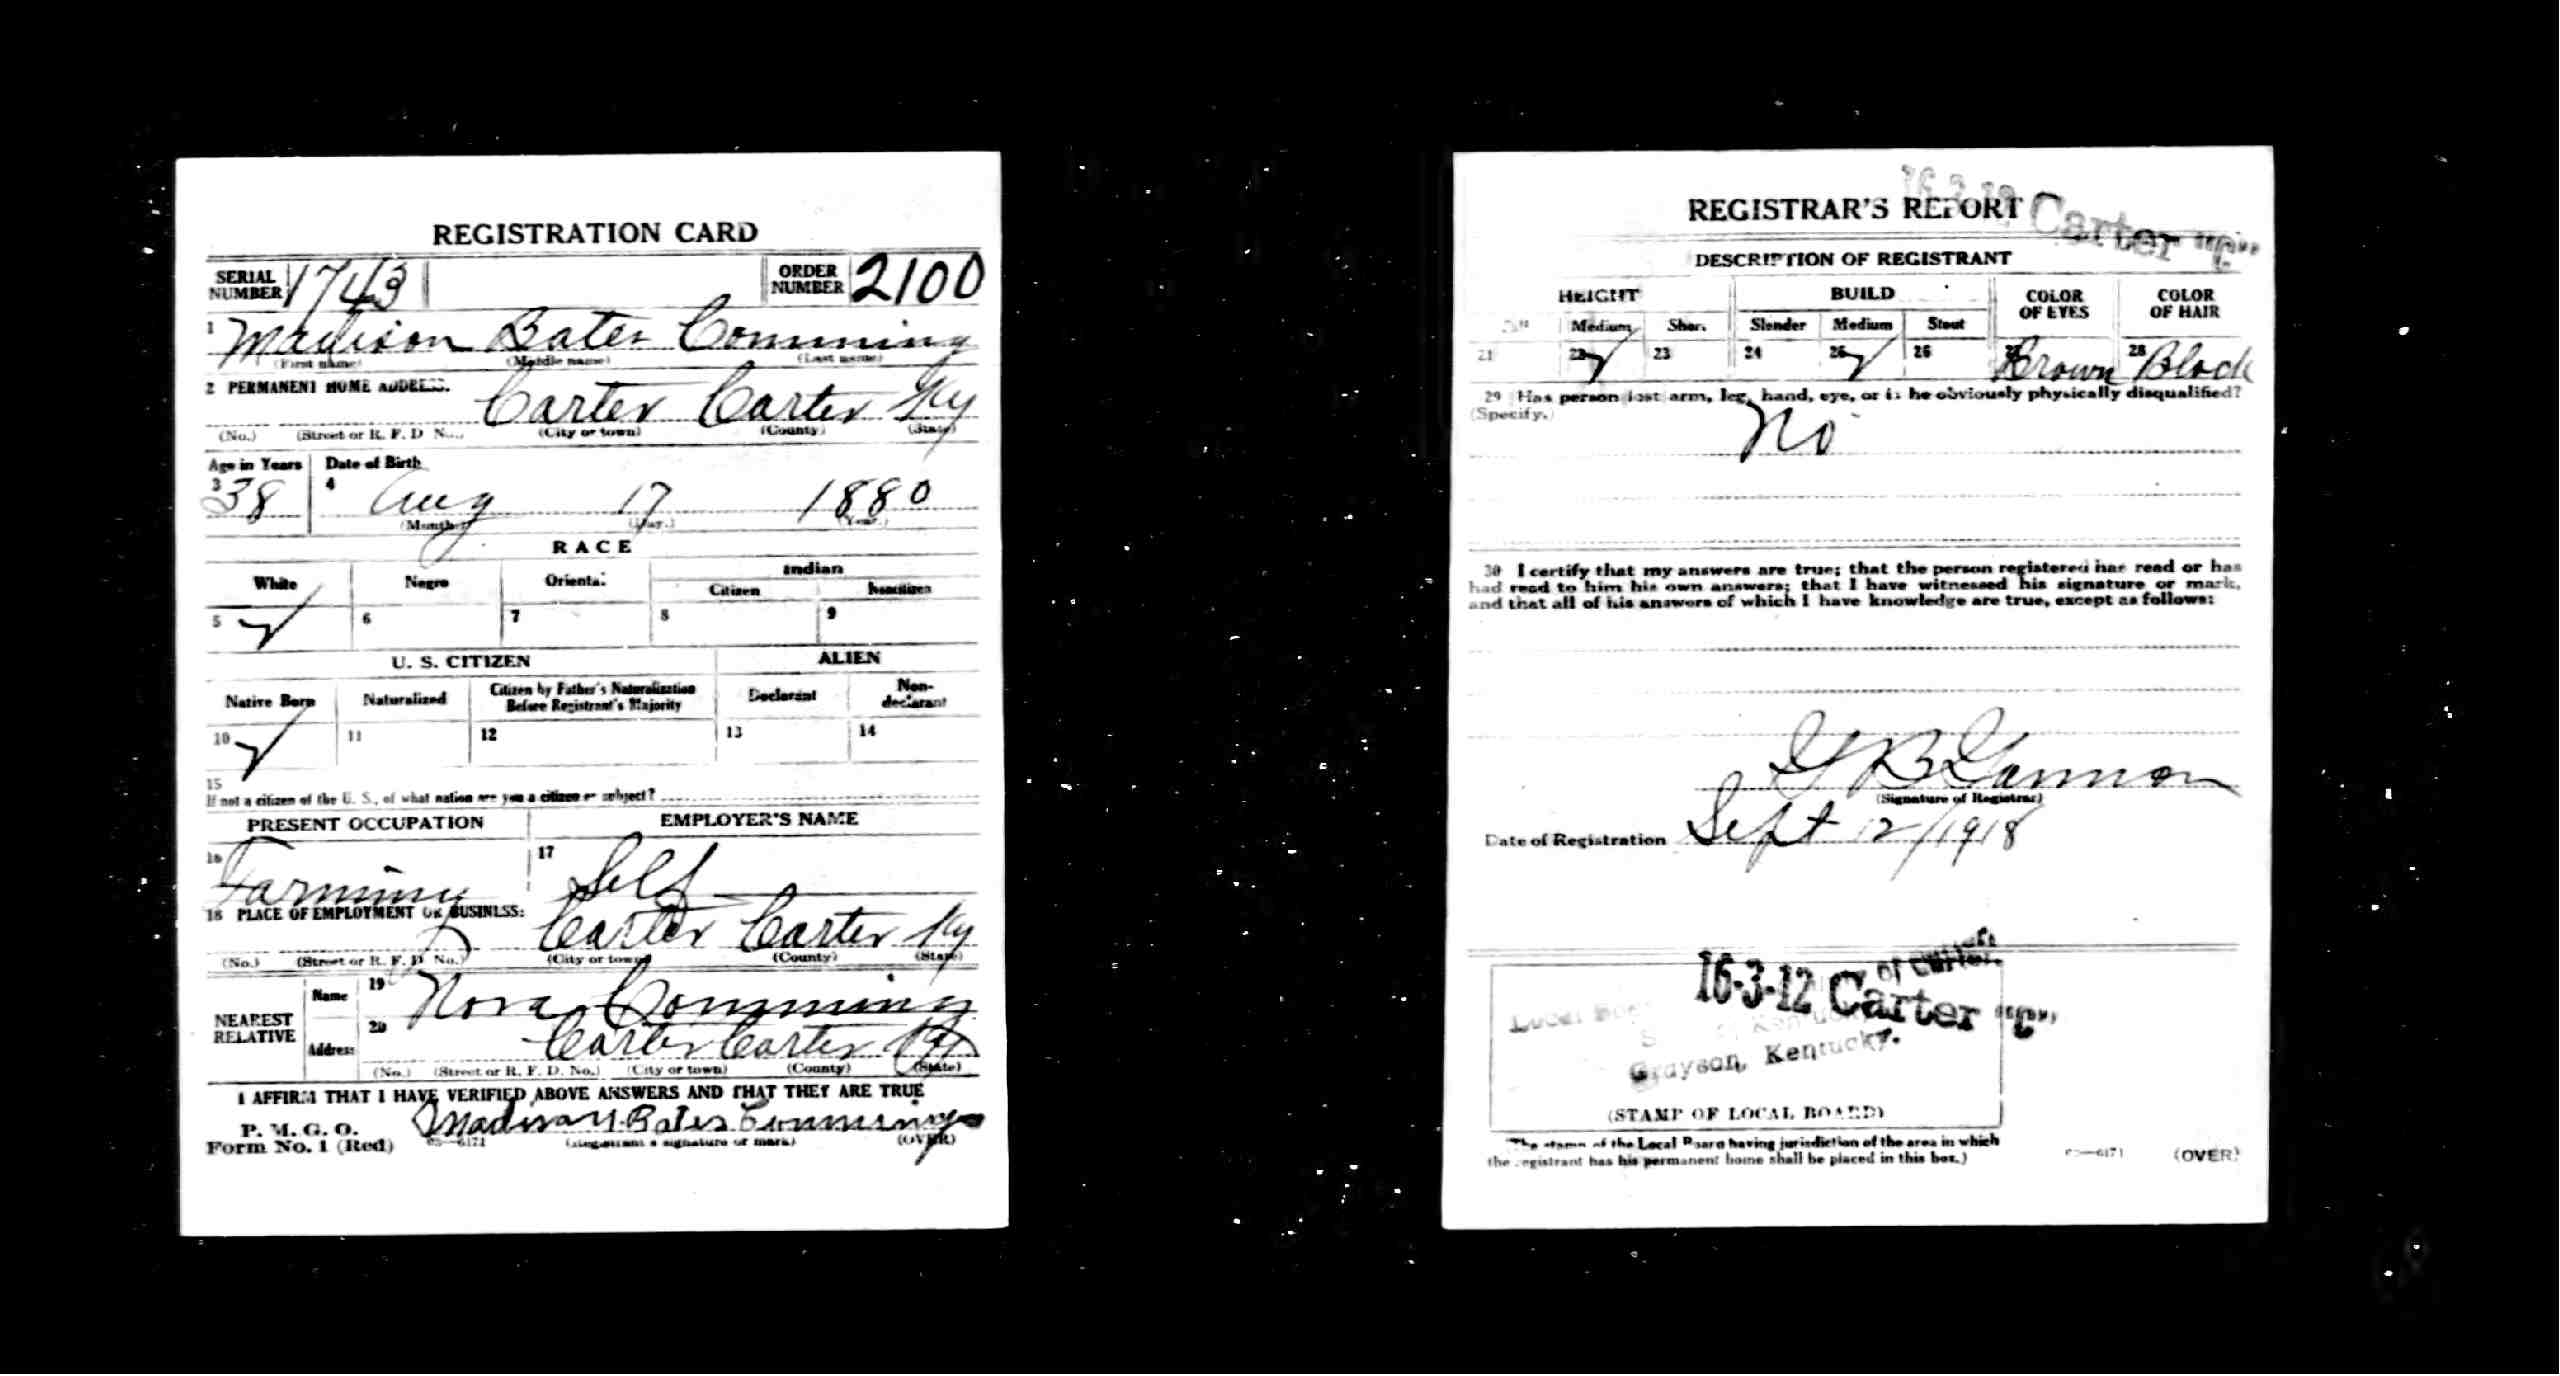 REGISTRATION CARD
SERIAL NUMBER 1743 ORDER NUMBER 2100
1 Madison Bates Comming
(First name) (Middle name) (Last name)
2 PERMANENT HOME ADDRESS.
Carter Carter Ky
(No.) (Street or R. F. D No.) (City or town) (County) (State)
Age in Years Date of Birth
3 38 4 Aug 17 1880
(Month) (Day.) (Year.)
RACE
White Negro Oriental Indian
Citizen Noncitizen
5 6 7 8 9
U. S. CITIZEN ALIEN
Native Born Naturalized Citizen by Father's Naturalization Before Registrant's Majority Declarant Non-declarant
10 11 12 13 14
15
If not a citizen of the U. S., of what nation are you a citizen or subject?
PRESENT OCCUPATION EMPLOYER'S NAME
16 Farming 17 Self
18 PLACE OF EMPLOYMENT OR BUSINESS:
Carter Carter Ky
(No.) (Street or R. F. D No.) (City or town) (County) (State)
NEAREST RELATIVE Name 19 Nora Comming
Address 20 Carter Carter Ky
(No.) (Street or R. F. D. No.) (City or town) (County) (State)
I AFFIRM THAT I HAVE VERIFIED ABOVE ANSWERS AND THAT THEY ARE TRUE
P. M. G. O.
Form No. 1 (Red) Madison Bates Comming
03—6171 (Registrant's signature or mark) (OVER)
16-3-12 Carter "C"
REGISTRAR'S REPORT
DESCRIPTION OF REGISTRANT
HEIGHT BUILD COLOR OF EYES COLOR OF HAIR
Medium Short Slender Medium Stout
21 22 23 24 25 26 27 Brown 28 Black
29 Has person lost arm, leg, hand, eye, or is he obviously physically disqualified?
(Specify.)
No
30 I certify that my answers are true; that the person registered has read or has
had read to him his own answers; that I have witnessed his signature or mark,
and that all of his answers of which I have knowledge are true, except as follows:
G B Gannon
(Signature of Registrar)
Date of Registration Sept 12/1918
16-3-12 Carter "C"
Local
Kentucky
Grayson, Kentucky.
(STAMP OF LOCAL BOARD)
(The stamp of the Local Board having jurisdiction of the area in which
the registrant has his permanent home shall be placed in this box.)
03—6171 (OVER)